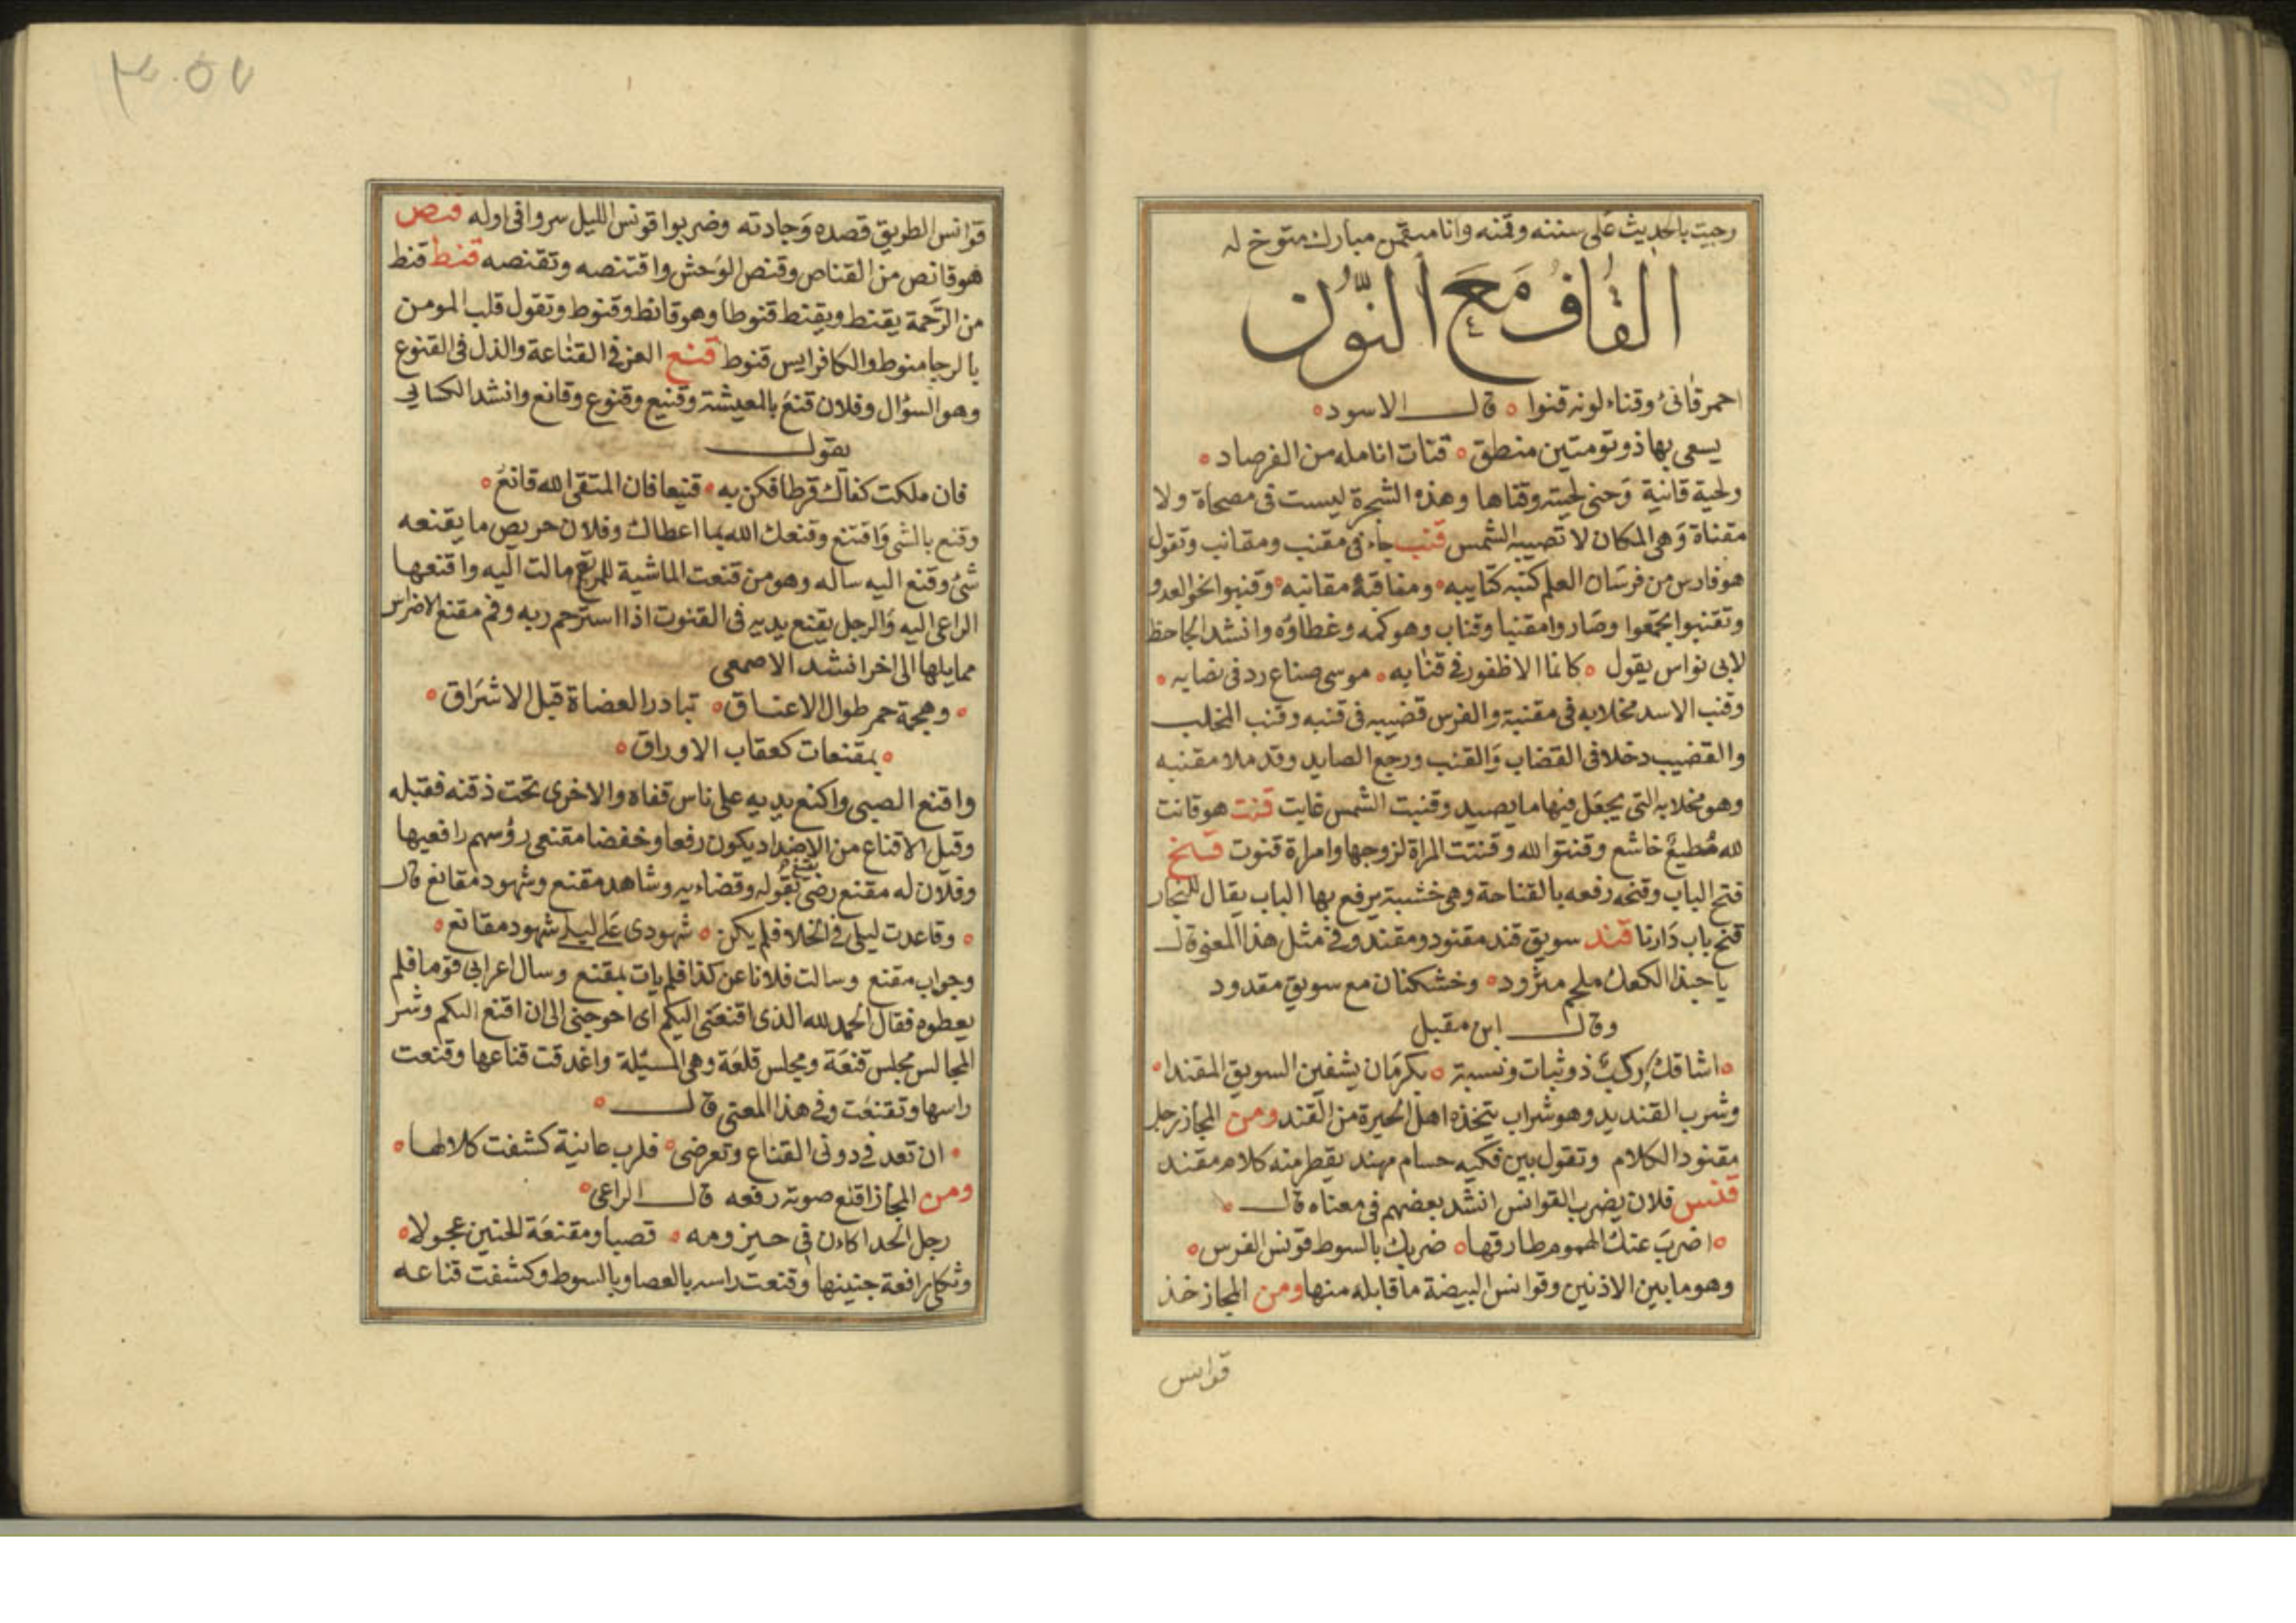 وجيت بالحديث على سننه وقمنه وانا متقمن مبارك متوخ له
القاف مع النون
احمر قانئ وقناء لونه قنوا ه قال الاسود ه
يسعى بها ذو تومتين منطق ه قنات انامله من الفرصاد ه
ولحية قانية وحنى لحيته وقناها وهذه الشجرة ليست في مصحاة ولا
مقناة وهي المكان لا تصيبه الشمس قنب جاء في مقنب ومقانب وتقول
هو فارس من فرسان العلم كتبه كتايبه ه ومناقبه مقانبه ه وقنبوا نحو العدو
وتقنبوا تجمعوا وصاروا مقنبا وقناب وهو كمه وغطاؤه وانشد الجاحظ
لابي نواس يقول ه كانما الاظفور في قنابه ه موسى صناع رد في نصابه ه
وقنب الاسد مخلابه في مقنبة والفرس قضيبه في قنبه وقنب المخلب
والقضيب دخلا في القضاب والقنب ورجع الصايد وقد ملا مقنبه
وهو مخلابه التي يجعل فيها ما يصيد وقنبت الشمس غابت قنت هو قانت
لله مطيع خاشع وقنتوا لله وقنتت المراة لزوجها وامراة قنوت قنح
فتح الباب وقنحه رفعه بالقناحة وهي خشبة يرفع بها الباب يقال للنجار
قنح باب دارنا قند سويق قند مقنود ومقند وفي مثل هذا المعنى قال
يا حبذا الكعك ملحم مثرود ه وخشكنان مع سويق مقدود
وقال ابن مقبل
ه اشاقك ركب ذو ثبات ونسبة ه بكرمان يشفين السويق المقندا ه
وشرب القنديد وهو شراب يتخذه اهل الحيرة من القند ومن المجاز رجل
مقنود الكلام وتقول بين فكيه حسام مهند يقطر منه كلام مقند
قنس فلان يضرب القوانس انشد بعضهم في معناه قال ه
ه اضرب عنك الهموم طارقها ه ضربك بالسوط قونس الفرس ه
وهو ما بين الاذنين وقوانس البيضة ما قابله منها ومن المجاز خذ
قوانس
قوانس الطويق قصده وجادته وضربوا قونس الليل سروا في اوله قنص
هو قانص من القناص وقنص الوحش واقتنصه وتقنصه قنط قنط
من الرحمة يقنط ويقنط قنوطا وهو قانط وقنوط وتقول قلب المومن
بالرجا منوط والكافر ايس قنوط قنع العز في القناعة والذل في القنوع
وهو السؤال وفلان قنع بالمعيشة وقنيع وقنوع وقانع وانشد الكسايي
يقول
فان ملكت كفاك قرطا فكن به ه قنيعا فان المتقي الله قانع ه
وقنع بالشي واقتنع وقنعك الله بما اعطاك وفلان حريص ما يقنعه
شئ وقنع اليه ساله وهو من قنعت الماشية للمرتع مالت اليه واقنعها
الراعي اليه والرجل يقنع يديه في القنوت اذا استرحم ربه وفم مقنع الاضراس
ممايلها الى اخر انشد الاصمعي
ه وهجمة حمر طوال الاعناق ه تبادر العضاة قبل الاشراق ه
ه بمقنعات كعقاب الاوراق ه
واقنع الصبي واكنع يديه على ناس قفاه والاخرى تحت ذقنه فقبله
وقيل الاقناع من الاضداد يكون رفعا وخفضا مقنعي رؤسهم رافعيها
وفلان له مقنع رضى يقنع بقوله وقضاءيه وشاهد مقنع وشهود مقانع قال
ه وقاعدت ليلى في الخلا فلم يكن ه شهودي على ليلى شهود مقانع ه
وجواب مقنع وسالت فلانا عن كذا فلم يات بمقنع وسال اعرابي قوما فلم
يعطوه فقال الحمد لله الذي اقنعني اليكم اي احوجني الى ان اقنع اليكم وشر
المجالس مجلس قنعة ومجلس قلعة وهي المسئلة واغدقت قناعها وقنعت
راسها وتقنعت وفي هذا المعنى قال ه
ه ان تعدفي دوني القناع وتعرضي ه فلرب عانية كشفت كلالها ه
ومن المجاز اقنع صوته رفعه قال الراعي ه
رجل الحدا كان في حيزومه ه قصبا ومقنعة الحنين عجولا ه
وثكلى رافعة حنينها وقنعت راسه بالعصا وبالسوط وكشفت قناعه